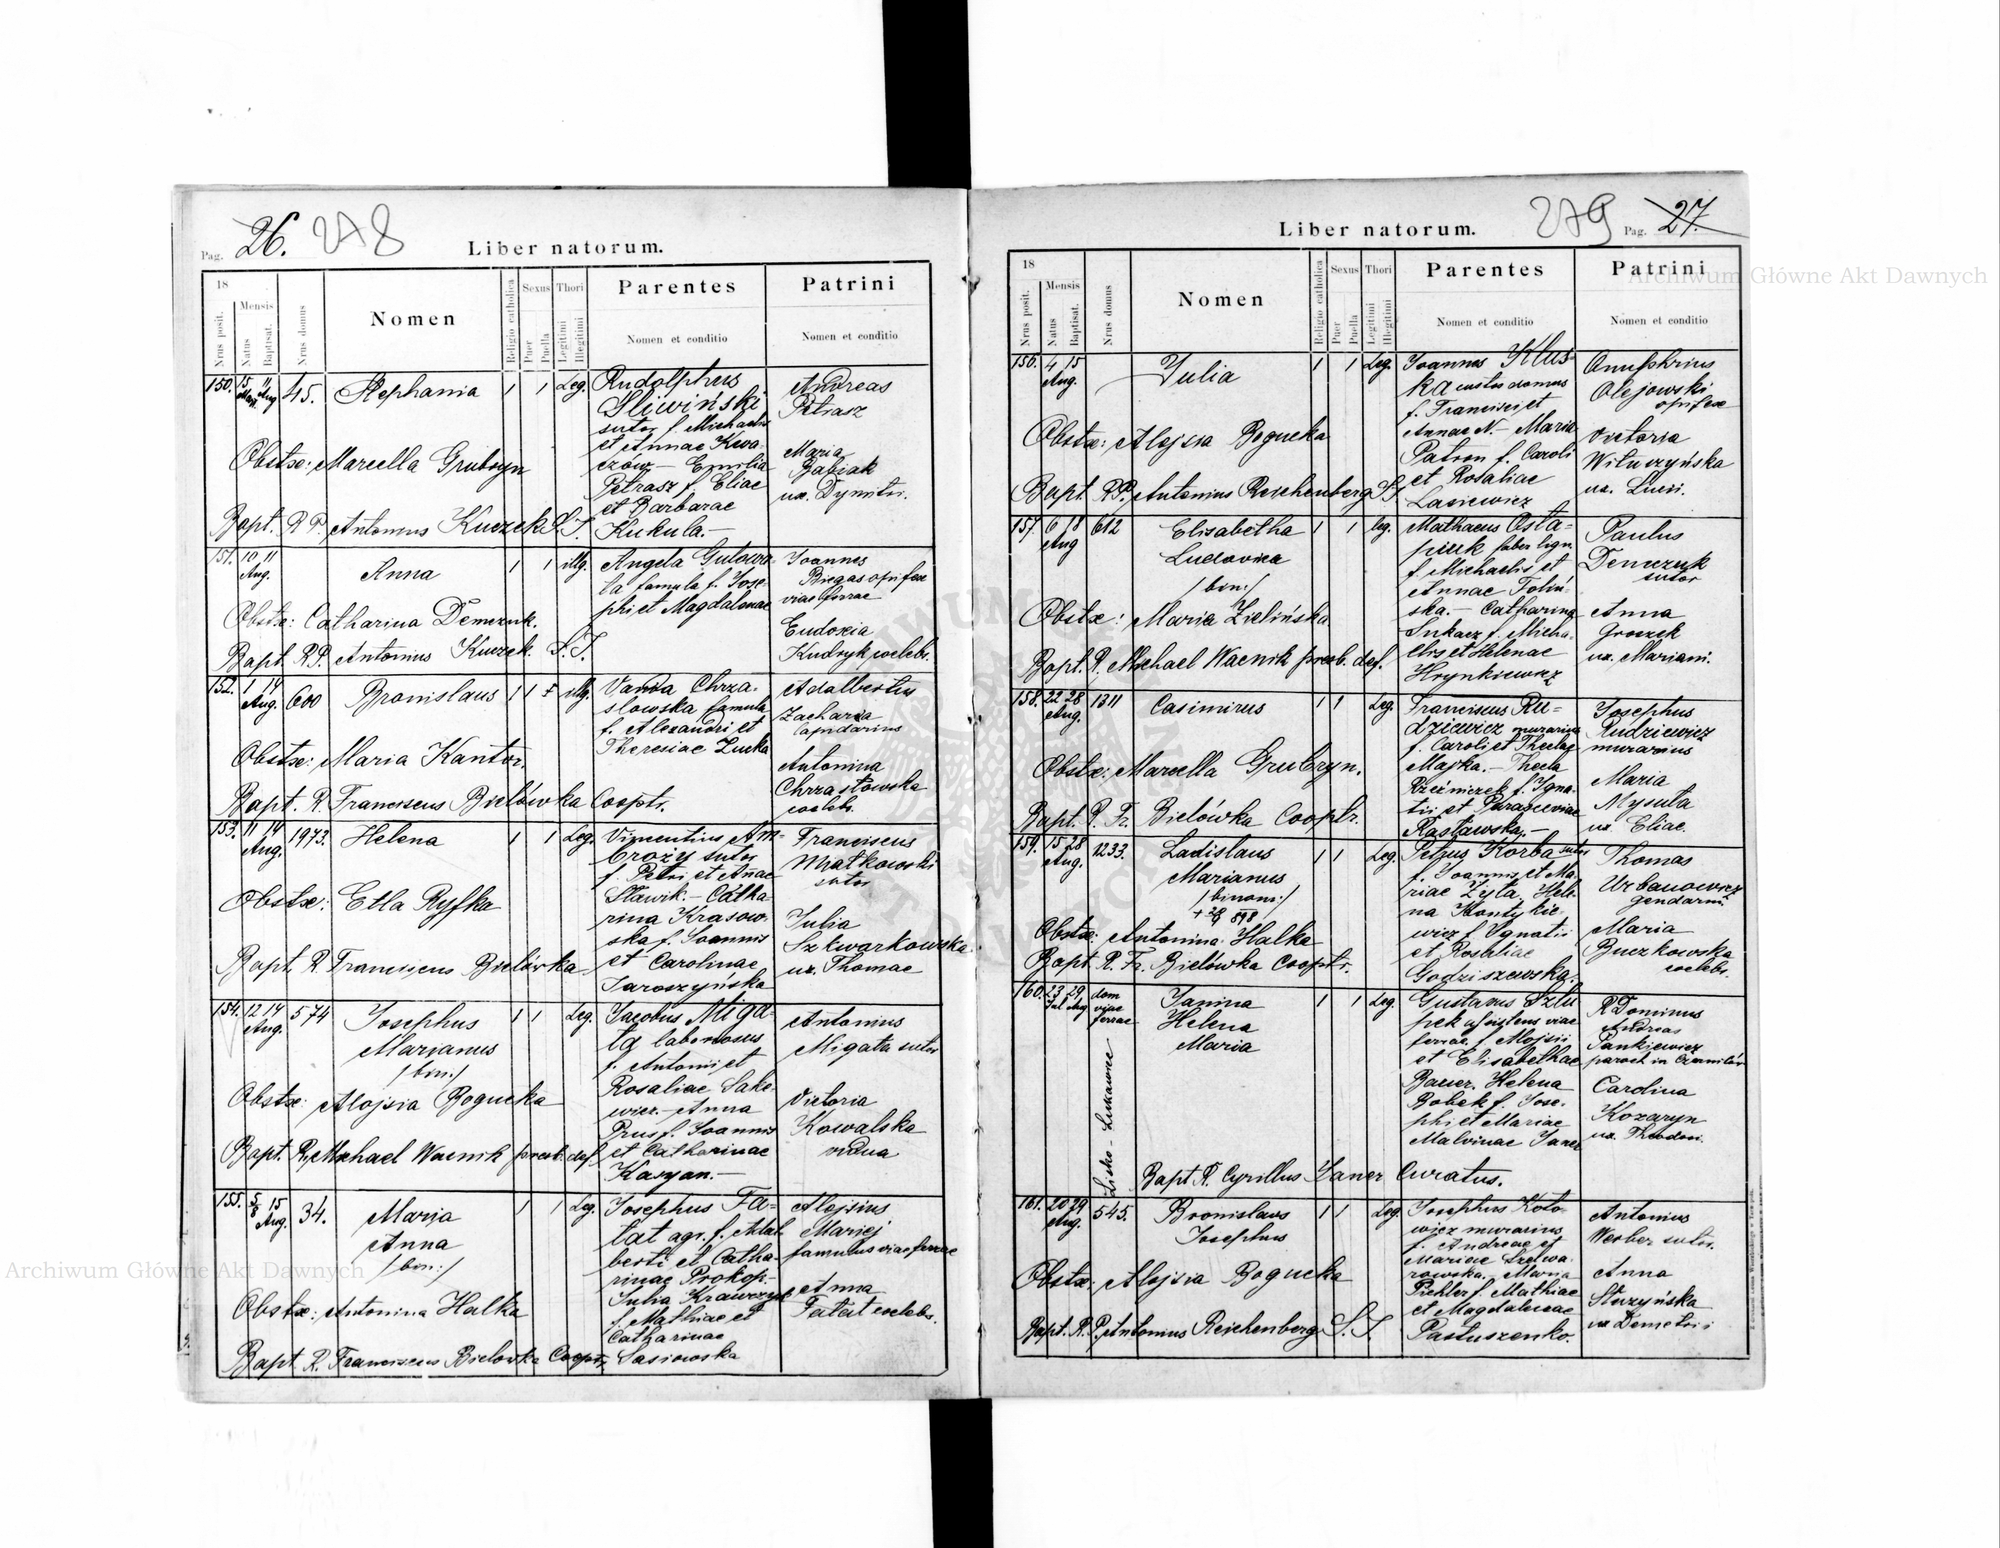 Pag. 26. 278
Liber natorum.
18
Nrus posit.
Mensis
Natus
Baptisat.
Nrus domus
Nomen
Religio catholica
Sexus
Puer
Puella
Thori
Legitimi
Illegitimi
Parentes
Nomen et conditio
Patrini
Nomen et conditio
150. 15 11 Aug 45. Stephania 1 1 Leg.
Rudolphus
Sliwiński
sutor f. Michaelis
et Annae Kwa-
czów — Emilia
Petrasz f. Eliae
et Barbarae
Kukula. —
Andreas
Petrasz
Maria
Babiak
ux. Dymitri.
Obstx: Marcella Grubryn
Bapt. R P. Antonius Kuczek S.J.
151. 10 11 Aug. Anna 1 1 illg.
Angela Gutows
la famula f. Jose-
phi et Magdalenae
Joannes
Biegas opifex
viae ferrae
Eudoxia
Kudryk coelebs.
Obstx: Catharina Demczuk.
Bapt. R.P. Antonius Kuczek. S.J.
152. 1 14 Aug. 600 Bronislaus 1 1 illg.
Vanda Chrza-
slowska famula
f. Alexandri et
Theresiae Lucka
Adalbertus
Zacharia
lapidarius
Antonina
Chrzastowska
coelebs.
Obstx: Maria Kantor.
Bapt. R. Franciscus Bielówka Cooptr.
153. 11 14 Aug. 1973. Helena 1 1 Leg.
Vincentius Am-
broży sutor
f. Petri et Annae
Sławik. — Catha
rina Krasow-
ska f. Joannis
et Carolinae
Jaroszyńska
Franciscus
Matkowski
sutor
Julia
Szkwarkowska
ux. Thomae
Obstx: Etla Ryfka
Bapt. R. Franciscus Bielówka
154. 12 14 Aug. 574 Josephus 1 1 Leg.
Marianus
/bin:/
Jacobus Miga-
ta laboriosus
f. Antonii et
Rosaliae Sake-
wicz. — Anna
Prus f. Joannis
et Catharinae
Kasyan. —
Antonius
Migata sutor
Victoria
Kowalska
vidua
Obstx: Alojsia Bogucka
Bapt. R. Michael Wacnik presb. def.
155. 5/8 15 Aug. 34. Maria 1 1 Leg.
Anna
/bin:/
Josephus Fa-
tat agr. f. Adal
berti et Catha-
rinae Prokop. —
Julia Krawczyk
f. Mathiae et
Catharinae
Sasiowska
Alojsius
Mariej
famulus viae ferrae
Anna
Fatat coelebs.
Obstx: Antonina Halka
Bapt. R. Franciscus Bielowka Cooptr.
Liber natorum.
279 Pag. 27.
18
Nrus posit.
Mensis
Natus
Baptisat.
Nrus domus
Nomen
Religio catholica
Sexus
Puer
Puella
Thori
Legitimi
Illegitimi
Parentes
Nomen et conditio
Patrini
Nomen et conditio
156. 4 15 Aug. Julia 1 1 Leg.
Joannes Klus-
ka custos domus
f. Francisci et
Annae N. — Maria
Patron f. Caroli
et Rosaliae
Lasiewicz
Onuphrius
Olejowski
opifex
Victoria
Wituszyńska
ux. Lucii.
Obstx: Alojsia Bogucka
Bapt. R P. Antonius Reichenberg S.J.
157. 6 18 Aug 612 Elisabetha 1 1 leg.
Ludovica
/bin:/
Mathaeus Osta-
piuk faber lign.
f. Michaelis et
Annae Toliń-
ska. — Catharina
Lukacz f. Micha-
elis et Helenae
Hrynkiewicz
Paulus
Demczuk
sutor
Anna
Groszek
ux. Mariani.
Obstx: Maria Zielińska
Bapt. R. Michael Wacnik presb. def.
158. 22 28 Aug. 1311 Casimirus 1 1 Leg.
Franciscus Ru-
dziewicz murarius
f. Caroli et Theclae
Majka. — Thecla
Rzeźniczek f. Igna-
tii et Parasceviae
Rastawska. —
Josephus
Rudziewicz
murarius
Maria
Mysuta
ux Eliae.
Obstx: Marcella Grubryn.
Bapt. R. Fr. Bielówka Cooptr.
159. 15 28 Aug. 1233. Ladislaus 1 1 Leg.
Marianus
/binom:/
Petrus Korba sutor
f. Joannis et Ma-
riae Zyta, Hele-
na Kontykie-
wicz f. Ignatii
et Rosaliae
Godziszewska.
Thomas
Urbanowicz
gendarm.
Maria
Buczkowska
coelebs.
Obstx: Antonina Halka
Bapt R. Fr. Bielówka Cooptr.
160. 23 29 Jul Aug dom viae ferrae Janina 1 1 Leg
Helena
Maria
Lisko - Łukawice
Gustavus Szlu
pek assistens viae
ferrae f. Alojsii
et Elisabethae
Bauer. Helena
Bobek f. Jose-
phi et Mariae
Malvinae Janer
R Dominus
Andreas
Pankiewicz
paroch in
Carolina
Kozaryn
ux. Theodori.
Bapt R. Cyrillus Janer Curatus.
161. 20 29 Aug. 545. Bronislaus 1 1 Leg.
Josephus
Josephus Koto-
wicz murarius
f. Andreae et
Mariae Szkwa-
rowska. Maria
Pichler f. Mathiae
et Magdalenae
Pastuszenko.
Antonius
Werber sutor.
Anna
Sluzyńska
ux Demetrii
Obstx: Alojsia Bogucka
Bapt. R. P. Antonius Reichenberg S.J.
Archiwum Główne Akt Dawnych
Archiwum Główne Akt Dawnych